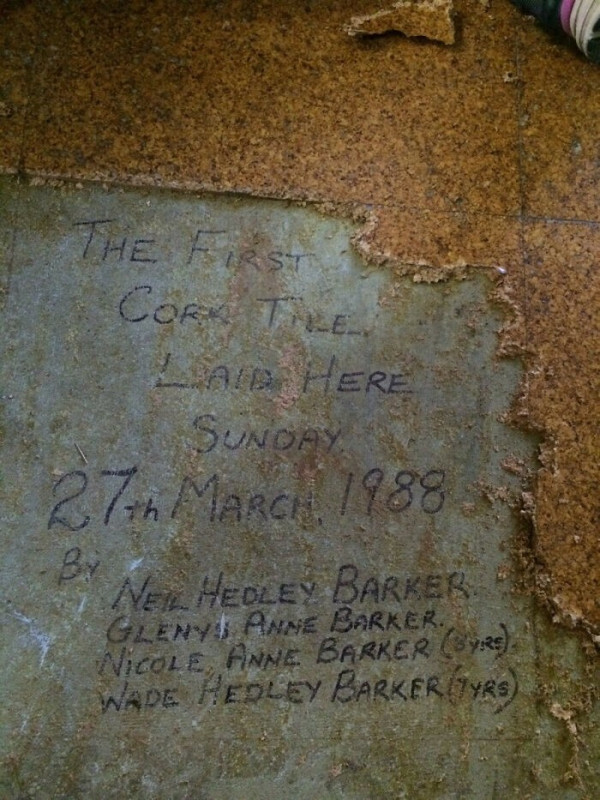 THE FIRST
CORK TILE.
LAID HERE
SUNDAY.
27th MARCH. 1988
BY
NEIL HEDLEY BARKER.
GLENYS ANNE BARKER.
NICOLE ANNE BARKER ( YRS).
WADE HEDLEY BARKER (7YRS)